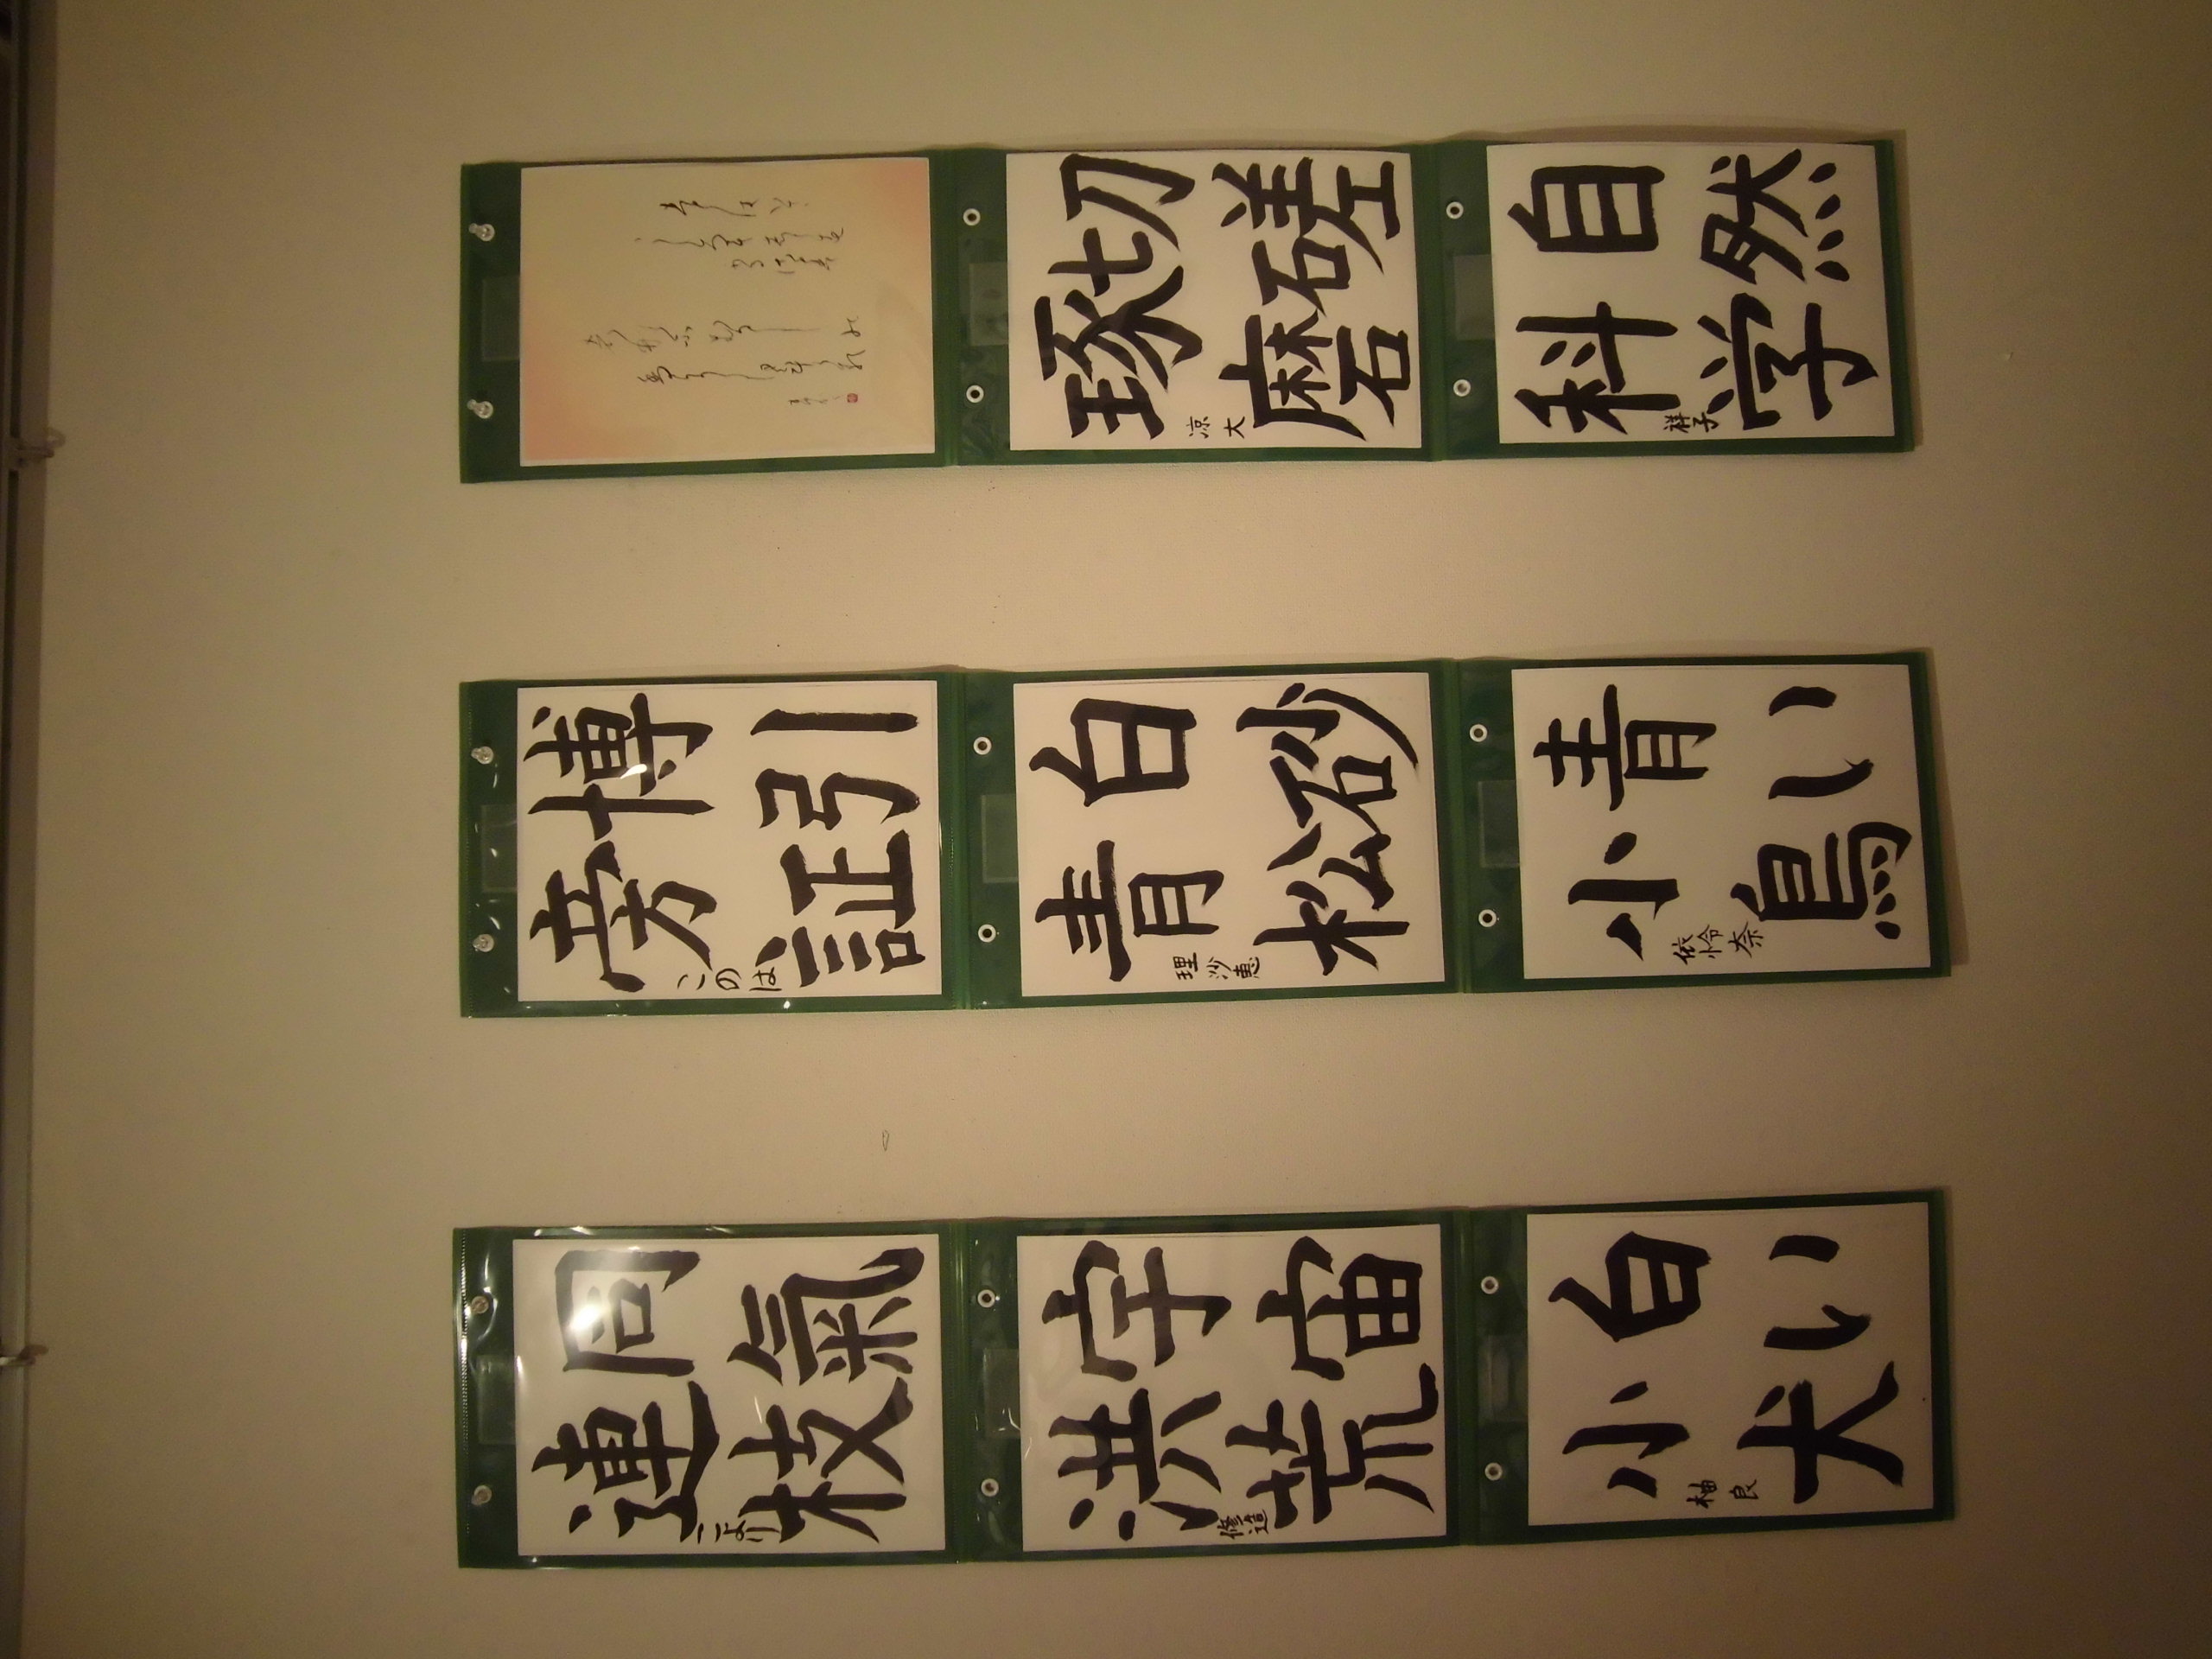 切磋
琢磨
涼大
自然
科学
祥子
博引
旁証
このは
白砂
青松
理沙恵
青い
小鳥
依怜奈
同氣
連枝
こより
宇宙
洪荒
修造
白い
小犬
柚良